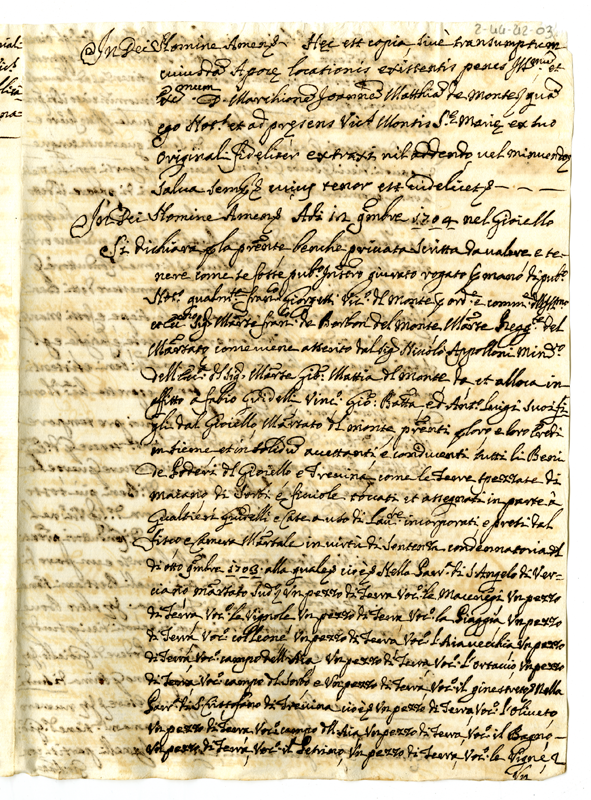 2-44-42-03
In Dei Nomine Amen. Hęc est copia, sive transumptum
cuiusdā Apocę locationis existentis penes Ill.mū et
D. Marchionē Joannē Matthiā de Monte, quā
ego Not.s et ad presens Vic.s Montis S.tę Marię ex suo
Originali fideliter extraxi nil addendo, vel minuendo
Salva semper cuius tenor est videlicet
In Dei Nomine Amen. Adi in 9mbre 1704 nel Gioiello
Si dichiara p la prēnte benche privata Scritta da valere e te-
nere come se fosse pub.o Instro giurato rogato p mano di pub.o
Not.o qualm.te Fran.co Giorgetti Vic.o del Monte p ord.e e comm.e
Sig. Marse Fran.co de Borbon del Monte Marse Regg.te del
Marsato come viene asserito dal Sig. Nicolo Appolloni Min.o
dell' Sig. Marse Gio: Mattia del Monte da et alloca in
affitto a Fabio Giudelli Vinc.o Gio: Batta, ed Ant.o Luigi suoi fi-
gli dal Gioiello Marsato del monte prēnti p loro e loro Eredi
insieme et in solidum accettanti e conducenti tutti li Beni
de Poderi del Gioiello e Trevina come le Terre spezzate di
e ficiole toccati et assegnati in parte à
Gualtieri Giudelli e incorporati e presi dal
Fisco e Camera Marsale in virtù di Sentenza condennatoria
di otto 9mbre 1703: alla quale cioè Nella Parr.a di S. Angelo di Ver-
ciano marsato Sud.o Un pezzo di Terra Voc.o le Un pezzo
di Terra Voc.o le Vignole Un pezzo di Terra Voc.o la Piaggia Un pezzo
di Terra Voc.o Un pezzo di Terra Voc.o l'Aia vecchia Un pezzo
di Terra Voc.o campo dell'Aia Un pezzo di Terra Voc.o l'ortaccio Un pezzo
di Terra Voc.o campo del Sorbo e Un pezzo di Terra Voc.o il Nella
Parr.a di S. Cristofano di Trevina cioè Un pezzo di Terra Voc.o l'Oliveto
Un pezzo di Terra Voc.o campo dell'Aia Un pezzo di Terra Voc.o il Bagno
Un pezzo di Terra, Voc.o il Un pezzo di Terra, Voc.o le Vigne
Un